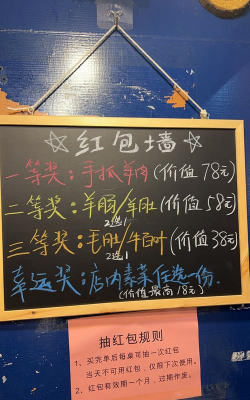 ☆红包墙☆
一等奖：手抓羊肉(价值78元)
二等奖：羊脑/羊肚(价值58元)
2选1
三等奖：毛肚/牛百叶(价值38元)
2选1
幸运奖：店内素菜任选一份.
(价值最高18元)
抽红包规则
1、买完单后每桌可抽一次红包
当天不可用红包，仅限下次使用。
2、红包有效期一个月，过期作废。